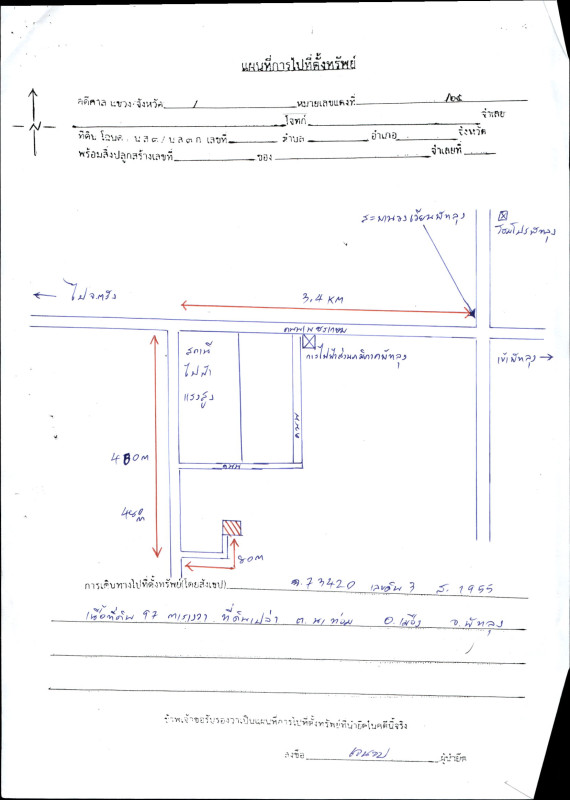 แผนที่การไปที่ตั้งทรัพย์
คดีศาล แขวง-จังหวัด / หมายเลขแดงที่ /๒๕
โจทก์ จำเลย
ที่ดิน โฉนด , น.ส.๓ / น.ส.๓ ก เลขที่ ตำบล อำเภอ จังหวัด
พร้อมสิ่งปลูกสร้างเลขที่ ของ จำเลยที่
N
ไป จ.ตรัง
3.4 KM
ถนนเพชรเกษม
สถานี
ไฟฟ้า
แรงสูง
การไฟฟ้าส่วนภูมิภาคพัทลุง
เข้าพัทลุง
ถนน
ถนน
480M
80M
การเดินทางไปที่ตั้งทรัพย์(โดยสังเขป) ฉ.73420 เลขดิน 3 ส. 1955
เนื้อที่ดิน 97 ตารางวา ที่ดินเปล่า ต.นาท่อม อ.เมือง จ.พัทลุง
ข้าพเจ้าขอรับรองว่าเป็นแผนที่การไปที่ตั้งทรัพย์ที่นำยึดในคดีนี้จริง
ลงชื่อ ผู้นำยึด